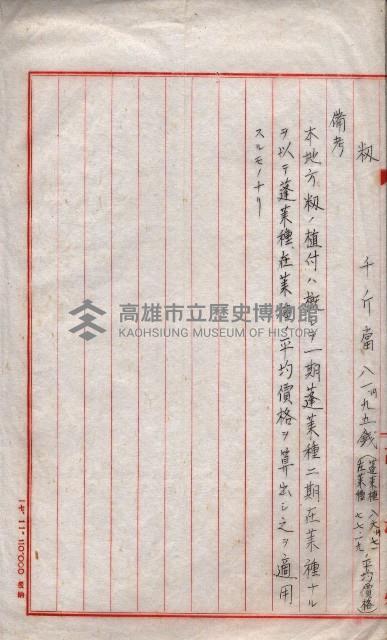 籾　千斤當　八一円九五銭（蓬莱種 八六円七一 在莱種 七七、一九 ノ平均價格）
備考
本地方籾ノ植付ハ概シテ一期蓬莱種二期在莱種ナル
ヲ以テ蓬莱種在莱種ノ平均價格ヲ算出シ之ヲ適用
スルモノナリ
高雄市立歷史博物館
KAOHSIUNG MUSEUM OF HISTORY
一七、一一、二〇、〇〇〇